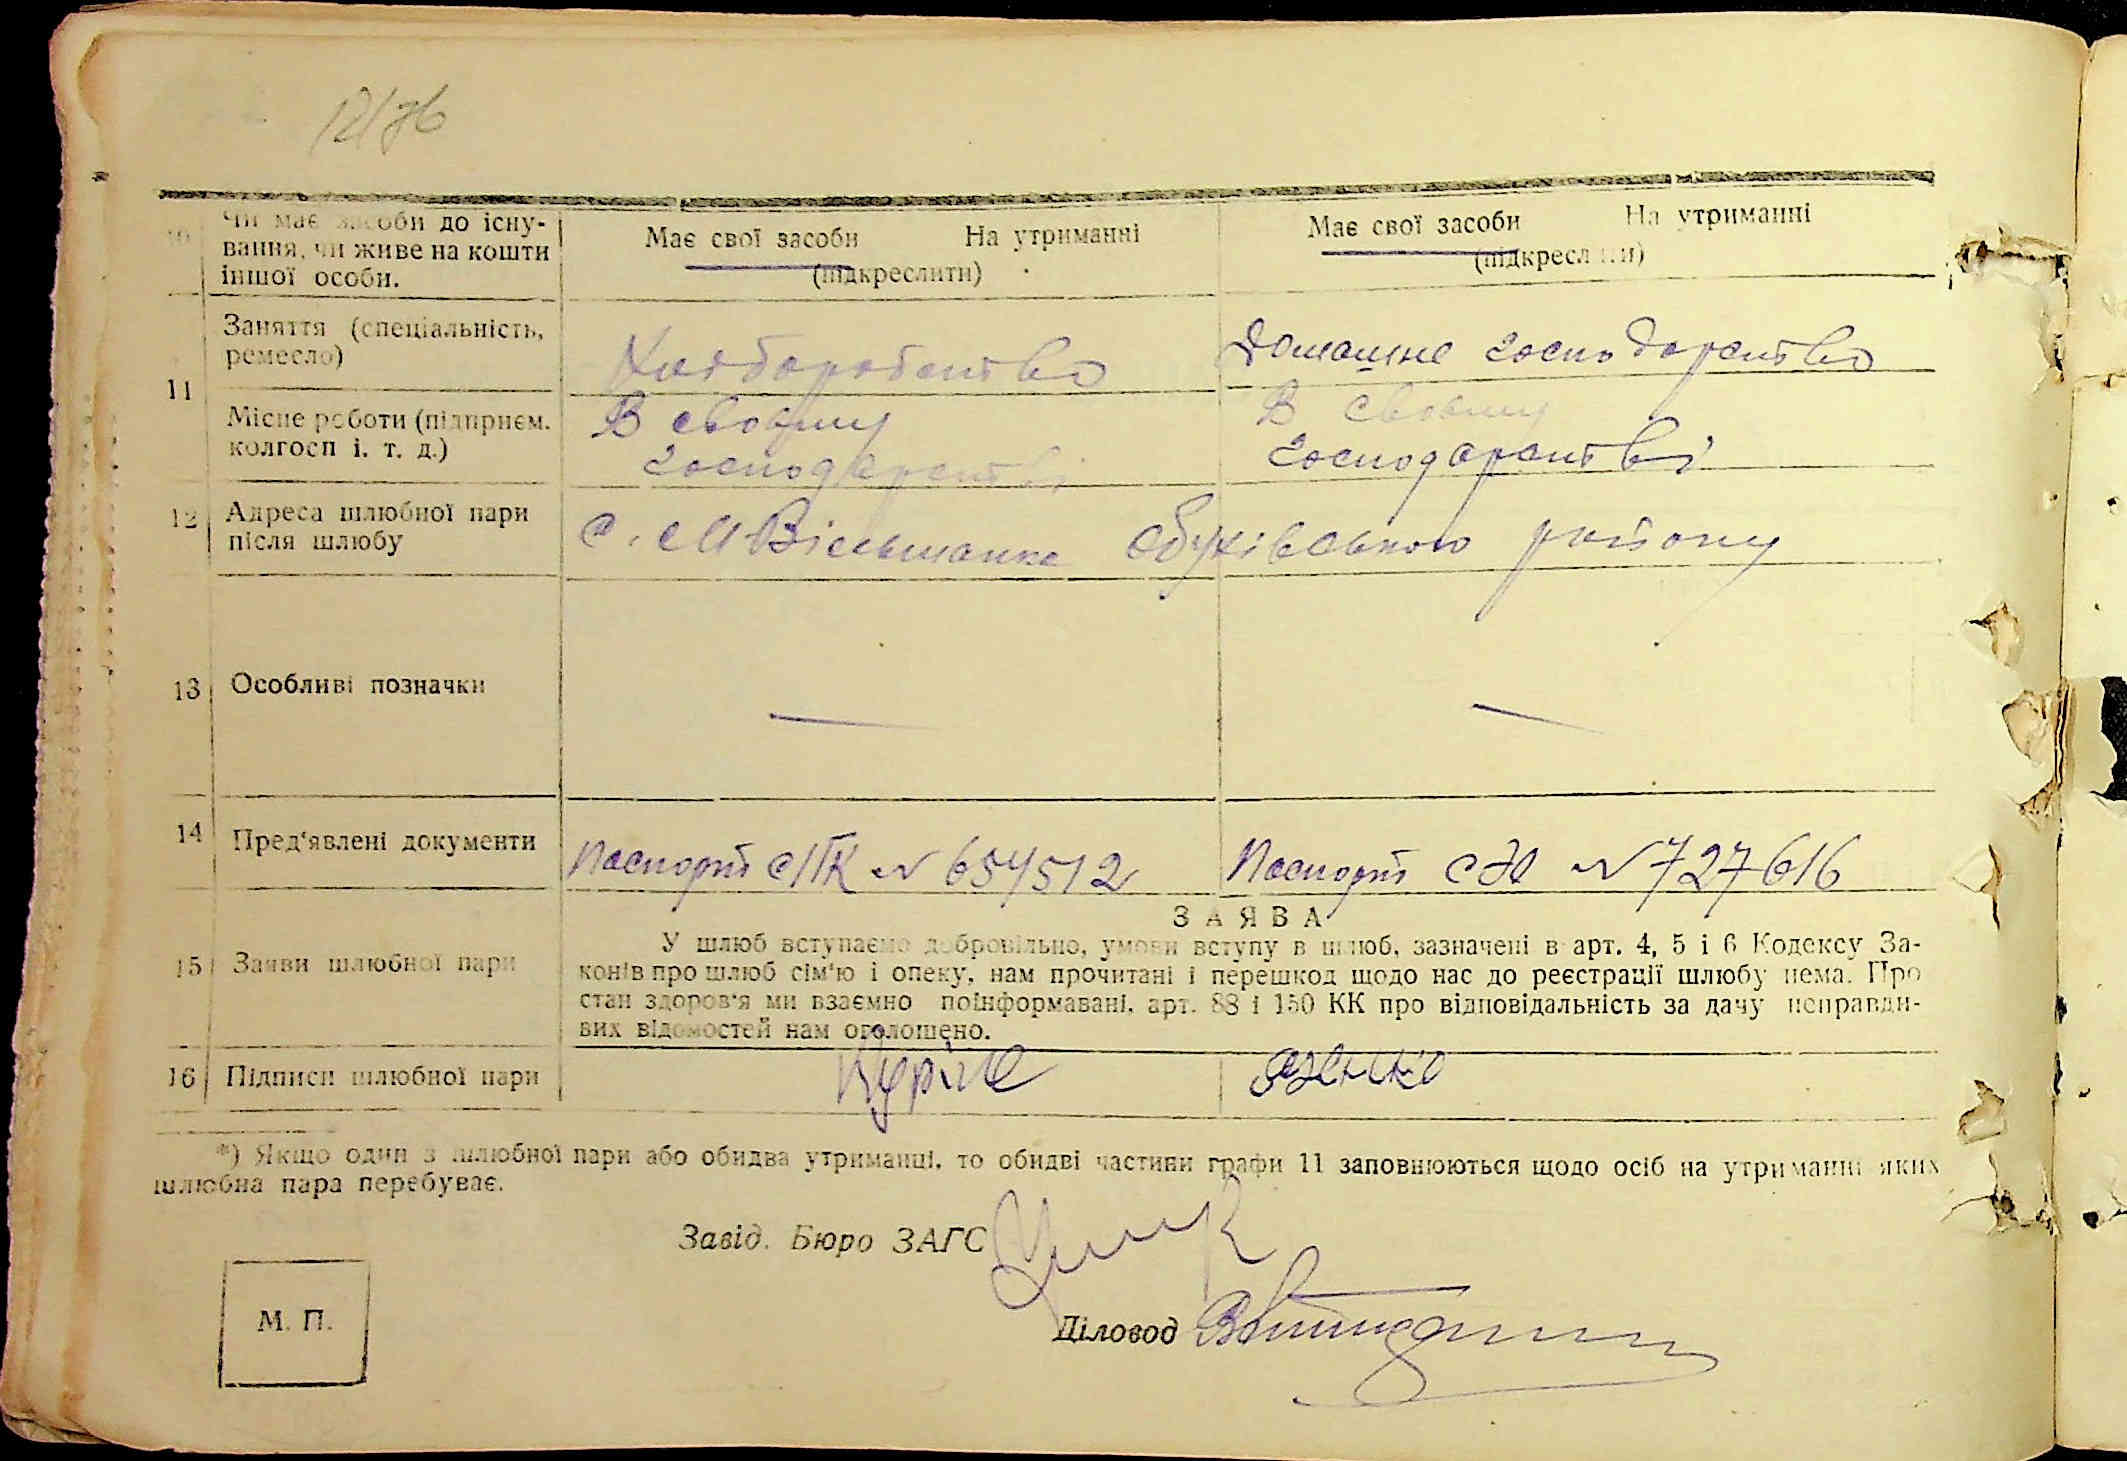 12/76
10 Чи має засоби до існу-
вання, чи живе на кошти
іншої особи.
Має свої засоби На утриманні
(підкреслити)
Має свої засоби На утриманні
(підкреслити)
11 Заняття (спеціальність,
ремесло)
Хліборобство
Домашнє господарство
Місце роботи (підприєм.
колгосп і. т. д.)
В своєму
господарстві
В своєму
господарстві
12 Адреса шлюбної пари
після шлюбу
С. М-Вільшанка Обухівського району
13 Особливі позначки
—
—
14 Пред'явлені документи
Паспорт СПК № 654512
Паспорт СЮ № 727616
15 Заяви шлюбної пари
ЗАЯВА
У шлюб вступаємо добровільно, умови вступу в шлюб, зазначені в арт. 4, 5 і 6 Кодексу За-
конів про шлюб сім'ю і опеку, нам прочитані і перешкод щодо нас до реєстрації шлюбу нема. Про
стан здоров'я ми взаємно поінформавані, арт. 88 і 150 КК про відповідальність за дачу неправди-
вих відомостей нам оголошено.
16 Підписи шлюбної пари
*) Якщо один з шлюбної пари або обидва утриманці, то обидві частини графи 11 заповнюються щодо осіб на утриманні яких
шлюбна пара перебуває.
Завід. Бюро ЗАГС
Діловод
М. П.